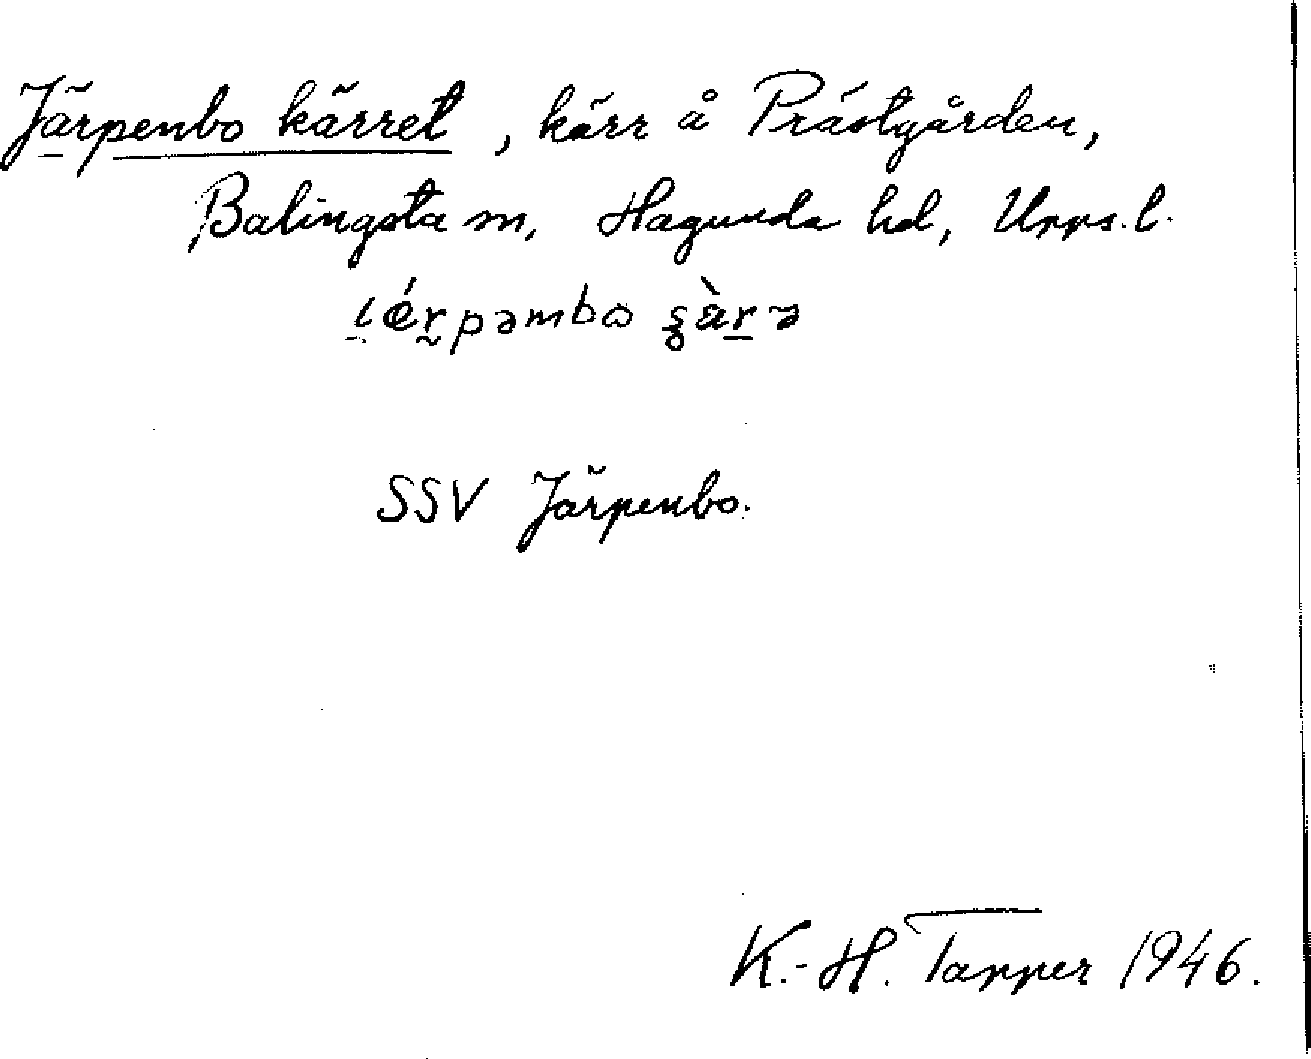 Järpenbo kärret, kärr å Prästgården,
Balingsta sn, Hagunda hd, Upps. l.
SSV Järpenbo.
K.-H. Tapper 1946.